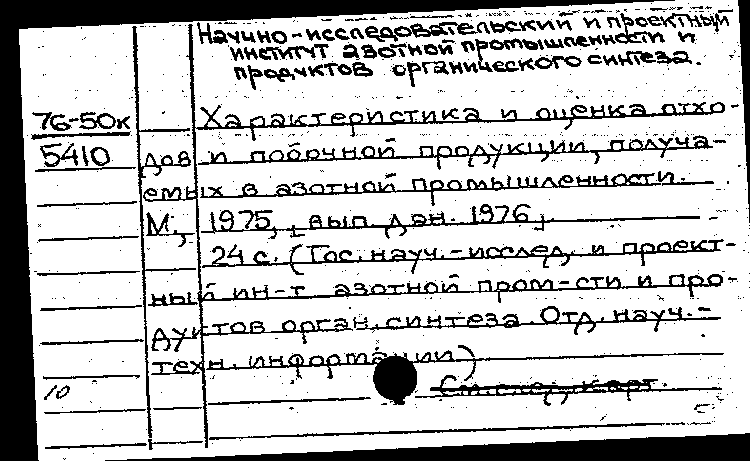 Научно-исследовательский и проектный
институт азотной промышленности и
продуктов органического синтеза.
76-50к
5410
Характеристика и оценка отхо-
дов и побочной продукции, получа-
емых в азотной промышленности.
М., 1975, [вып. дан. 1976].
24 с. (Гос. науч.-исслед. и проект-
ный ин-т азотной пром-сти и про-
дуктов орган. синтеза. Отд. науч.-
техн. информации)
10
См. след. карт.